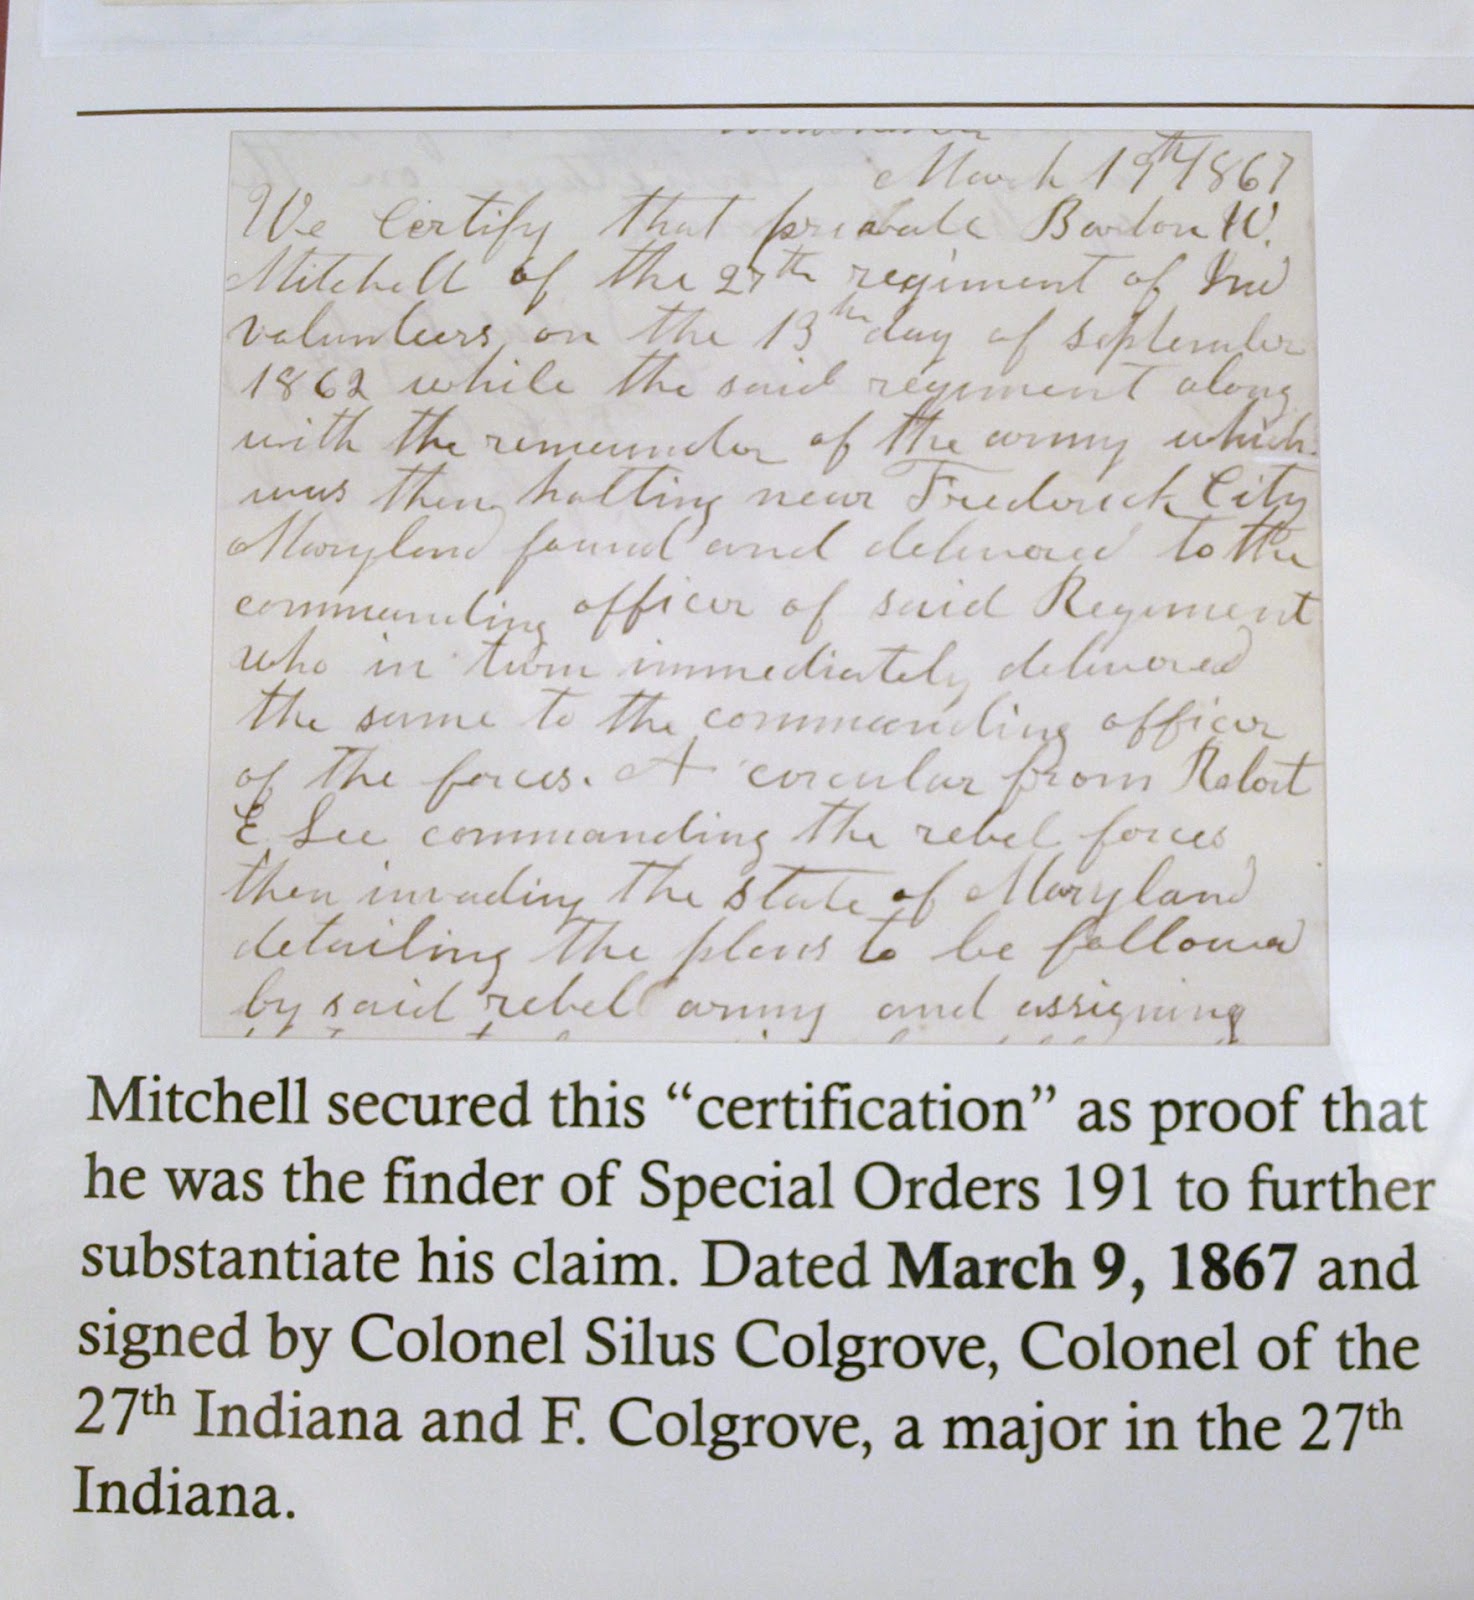 March 19th 1867
We Certify that private Barton W.
Mitchell of the 27th regiment of Ind
volunteers on the 13th day of september
1862 while the said regiment along
with the remainder of the army which
was then halting near Frederick City
Maryland found and delivered to the
commanding officer of said Regiment
who in turn immediately delivered
the same to the commanding officer
of the forces. A circular from Robert
E Lee commanding the rebel forces
then invading the state of Maryland
detailing the plans to be followed
by said rebel army and assigning
Mitchell secured this “certification” as proof that
he was the finder of Special Orders 191 to further
substantiate his claim. Dated March 9, 1867 and
signed by Colonel Silus Colgrove, Colonel of the
27th Indiana and F. Colgrove, a major in the 27th
Indiana.